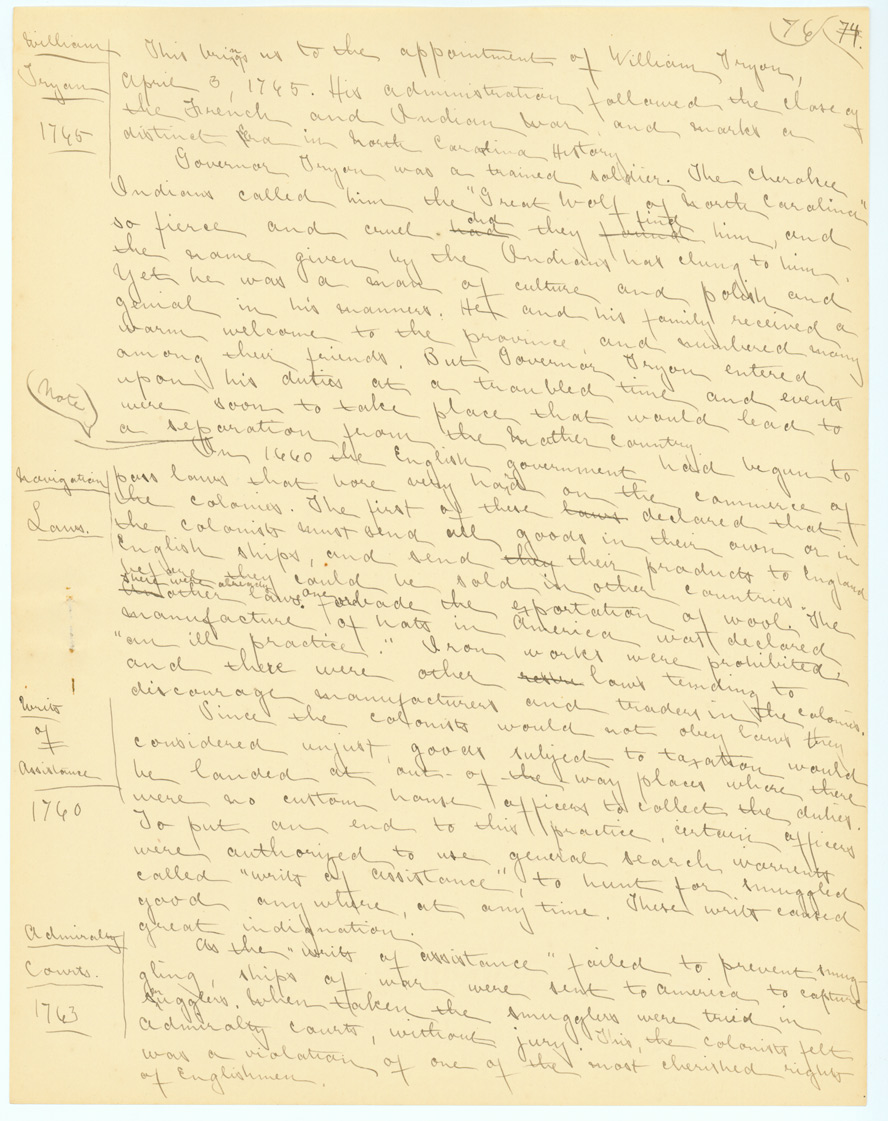 76 74.
William
Tryon
1765
This brings us to the appointment of William Tryon,
April 3, 1765. His administration followed the close of
the French and Indian War, and marks a
distinct Era in North Carolina History.
Governor Tryon was a trained soldier. The Cherokee
Indians called him the "Great Wolf of North Carolina"
so fierce and cruel had did they found find him, and
the name given by the Indians has clung to him.
Yet he was a man of culture and polish and
genial in his manners. He and his family received a
warm welcome to the province, and numbered many
among their friends. But Governor Tryon entered
upon his duties at a troubled time and events
were soon to take place that would lead to
a separation from the Mother Country.
(Note)
In 1660 the English government had begun to
Navigation
Laws.
pass laws that bore very hard on the commerce of
the colonies. The first of these laws declared that
the colonists must send all goods in their own or in
English ships, and send they their products to England
before they could be sold in other countries. The
there were already
other laws. one forbade the exportation of wool. The
manufacture of hats in America was declared
"an ill practice." Iron works were prohibited,
and there were other laws tending to
discourage manufacturers and traders in the colonies.
Writs
of
Assistance
1760
Since the colonists would not obey laws they
considered unjust, goods subject to taxation would
be landed at out-of the way places where there
were no custom house officers to collect the duties.
To put an end to this practice, certain officers
were authorized to use general search warrents
called "writs of assistance", to hunt for smuggled
good anywhere, at any time. These writs caused
great indignation.
Admiralty
Courts.
1763
As the "writs of assistance" failed to prevent smug-
gling, ships of war were sent to America to capture
smugglers. When taken the smugglers were tried in
admiralty courts, without jury. This, the colonists felt
was a violation of one of the most cherished rights
of Englishmen.